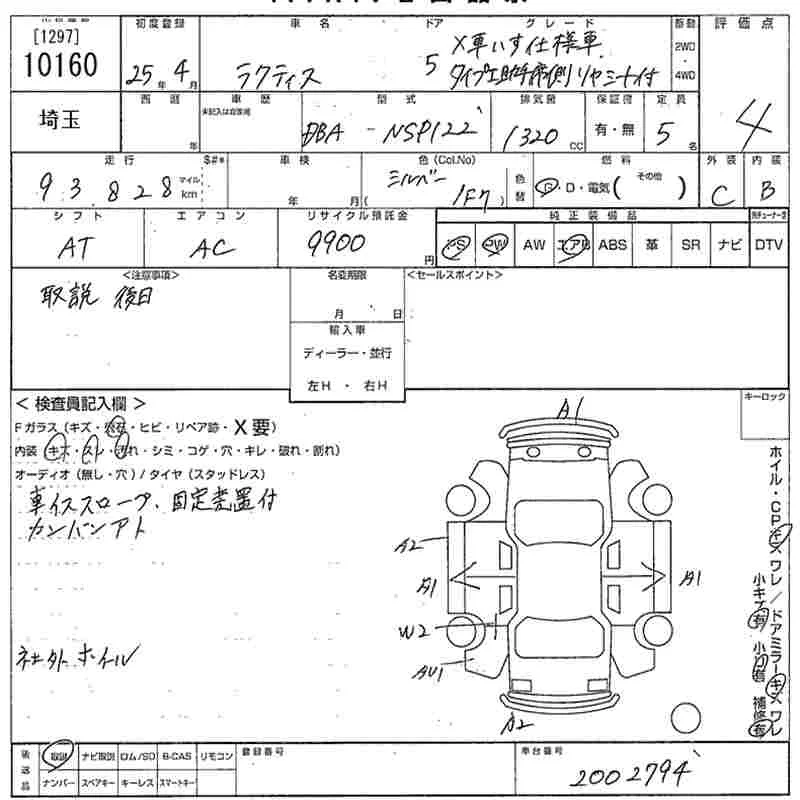 [1297]
10160
埼玉
初度登録
25年 4月
車名
ラクティス
ドア
5
グレード
X車いす仕様車
タイプⅠ助手席側リヤシート付
駆動
2WD
4WD
評価点
4
西暦
年
車歴
未記入は自家用
型式
DBA - NSP122
排気量
1320 CC
保証書
有・無
定員
5名
走行
93,828
マイル
km
S#*
車検
年 月
色 (Col.No)
シルバー
(1F7)
色替
燃料
G・D・電気( その他 )
外装
C
内装
B
シフト
AT
エアコン
AC
リサイクル預託金
9900円
純正装備品
PS PW AW エアB ABS 革 SR ナビ DTV
<注意事項>
取説 後日
名変期限
月 日
輸入車
ディーラー・並行
左H ・ 右H
<セールスポイント>
キーロック
< 検査員記入欄 >
Fガラス (キズ・飛石・ヒビ・リペア跡・X要)
内装 (キズ・スレ・汚れ・シミ・コゲ・穴・キレ・破れ・割れ)
オーディオ (無し・穴) / タイヤ (スタッドレス)
車イススロープ、固定装置付
カンバンアト
社外ホイル
A1
A2
A1
A1
W2
AU1
A2
ホイル・CPキズ ワレ / ドアミラーキズ ワレ
小キズ有 小凹有 補修有
後送品
取説 ナビ取説 ロム/SD B-CAS リモコン
ナンバー スペアキー キーレス スマートキー
登録番号
車台番号
2002794